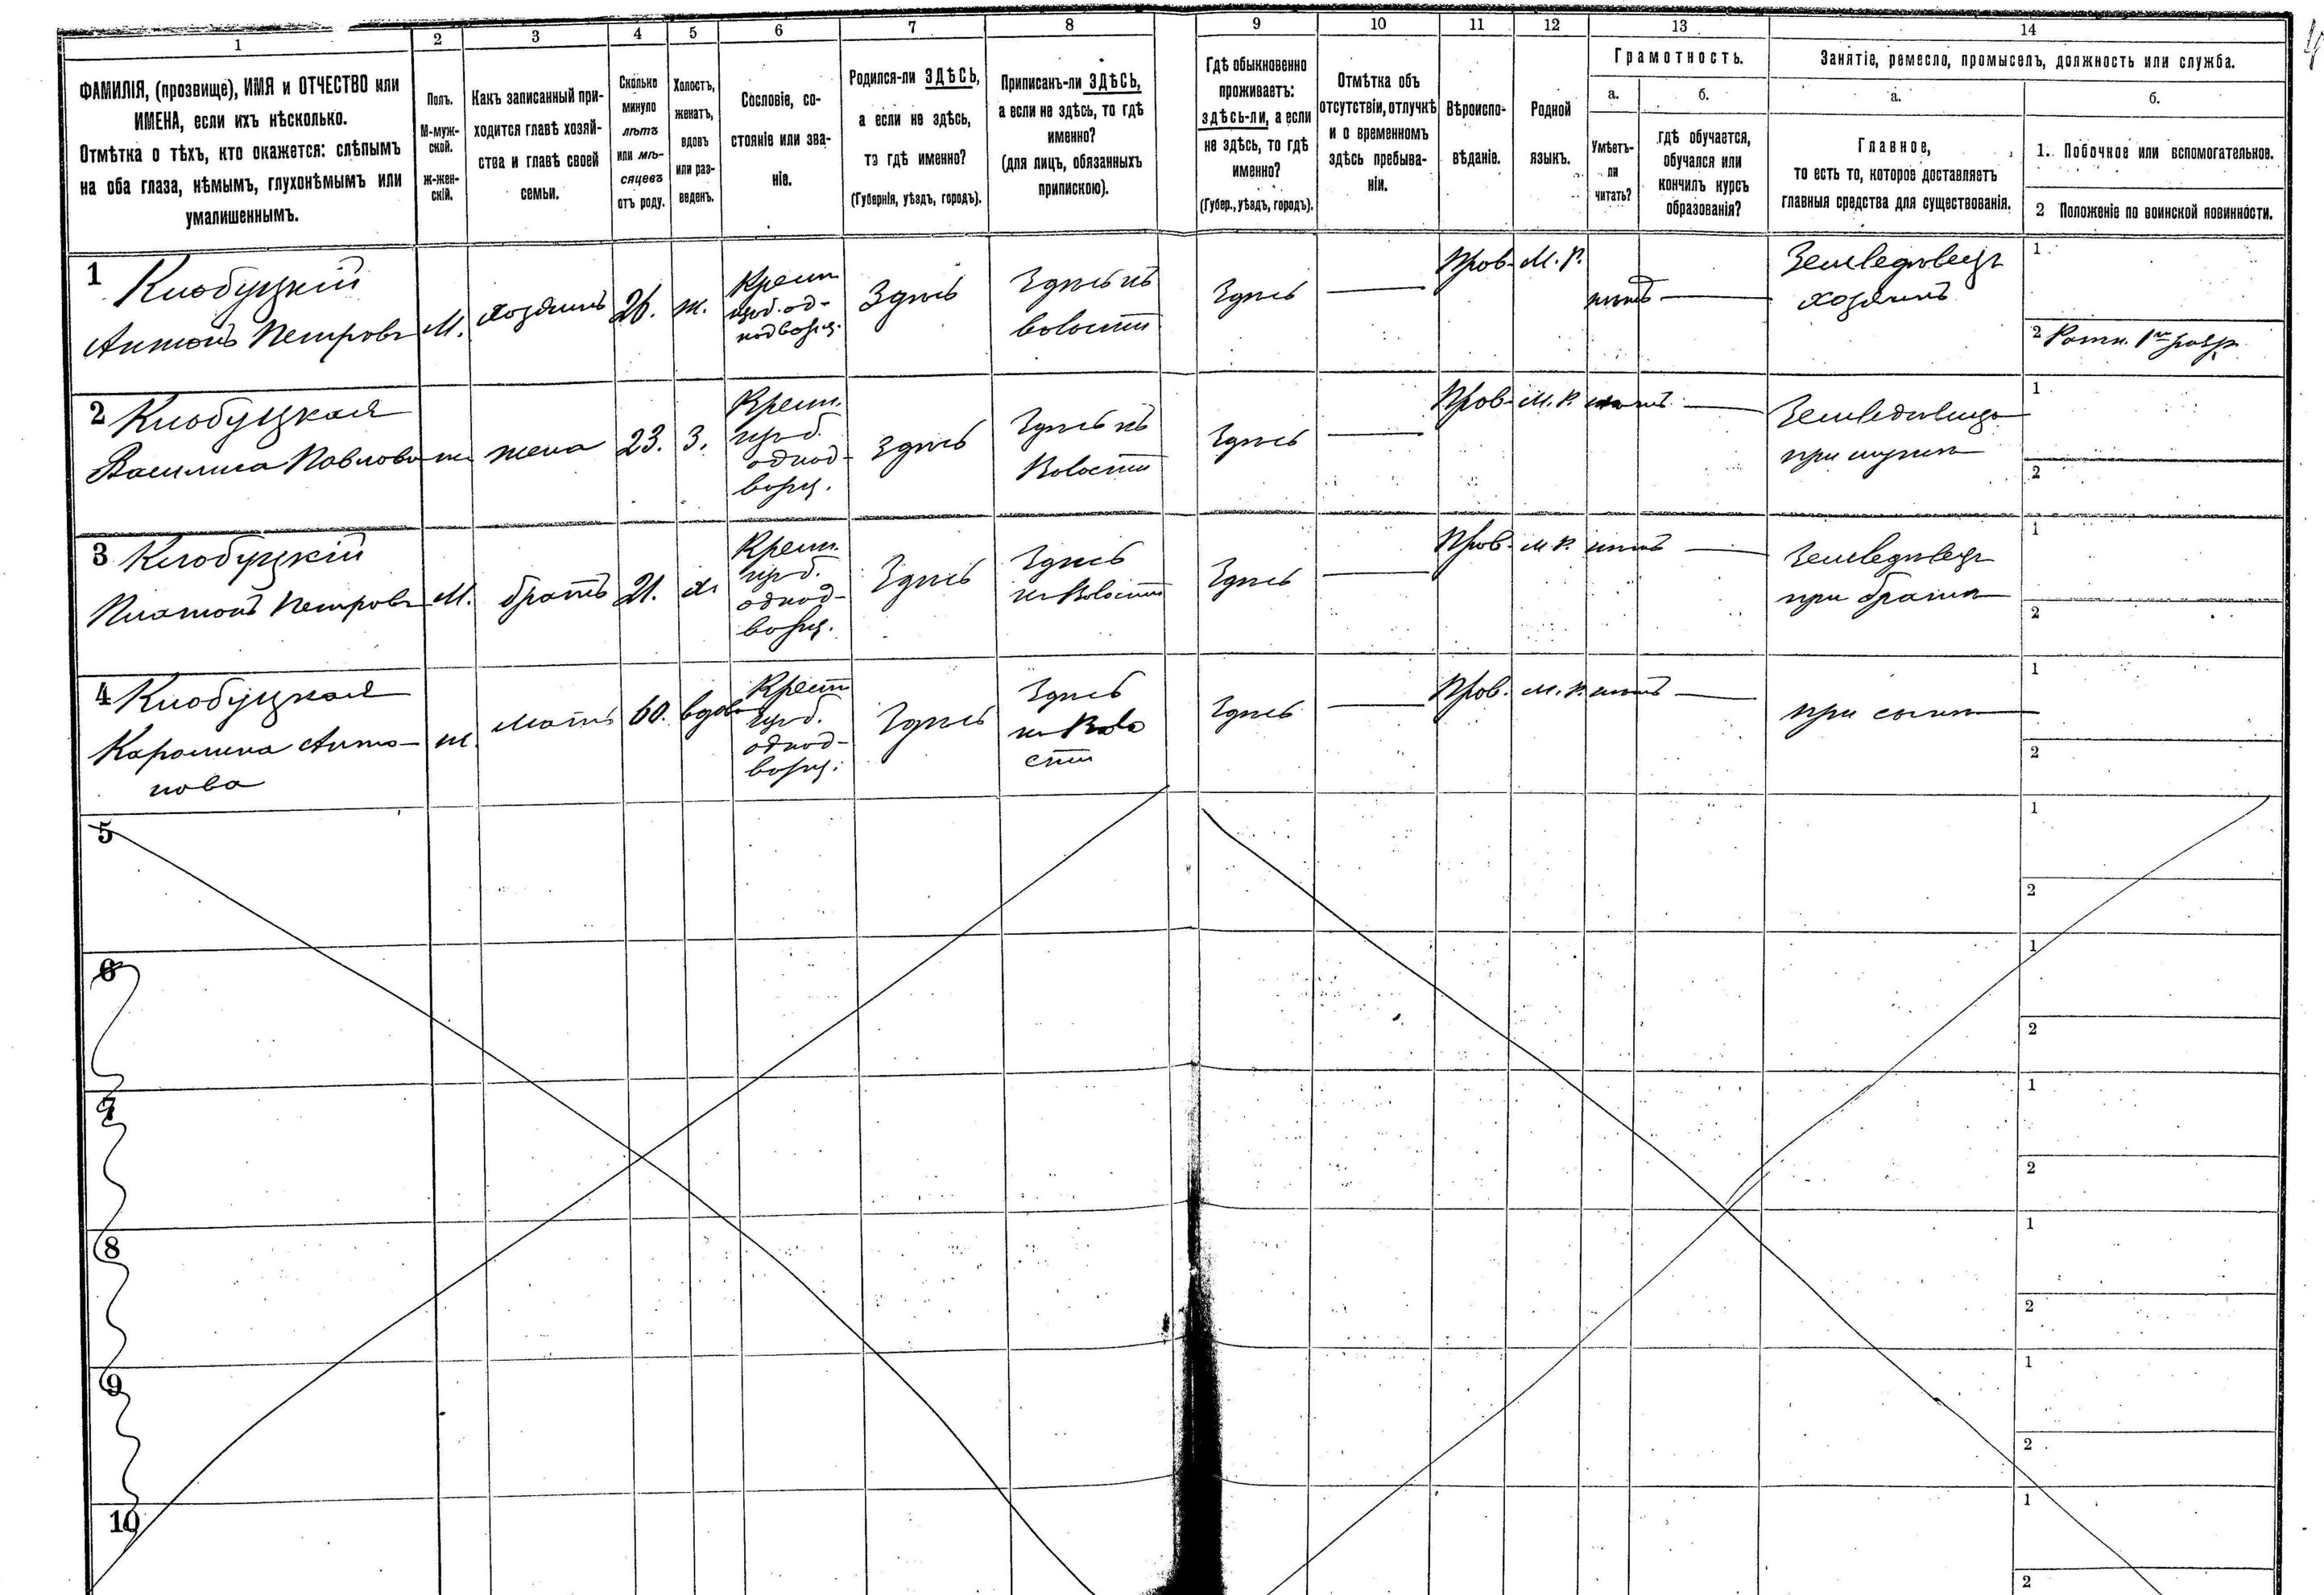 1
2
3
4
5
6
7
8
9
10
11
12
13
14
ФАМИЛІЯ, (прозвище), ИМЯ и ОТЧЕСТВО или
ИМЕНА, если ихъ нѣсколько.
Отмѣтка о тѣхъ, кто окажется: слѣпымъ
на оба глаза, нѣмымъ, глухонѣмымъ или
умалишеннымъ.
Полъ.
М-муж-
ской.
Ж-жен-
скій.
Какъ записанный при-
ходится главѣ хозяй-
ства и главѣ своей
семьи.
Сколько
минуло
лѣтъ
или мѣ-
сяцевъ
отъ роду.
Холостъ,
женатъ,
вдовъ
или раз-
веденъ.
Сословіе, со-
стояніе или зва-
ніе.
Родился-ли ЗДѢСЬ,
а если не здѣсь,
то гдѣ именно?
(Губернія, уѣздъ, городъ).
Приписанъ-ли ЗДѢСЬ,
а если не здѣсь, то гдѣ
именно?
(для лицъ, обязанныхъ
припискою).
Гдѣ обыкновенно
проживаетъ:
здѣсь-ли, а если
не здѣсь, то гдѣ
именно?
(Губер., уѣздъ, городъ).
Отмѣтка объ
отсутствіи, отлучкѣ
и о временномъ
здѣсь пребыва-
ніи.
Вѣроиспо-
вѣданіе.
Родной
языкъ.
Грамотность.
а.
Умѣетъ-
ли
читать?
б.
гдѣ обучается,
обучался или
кончилъ курсъ
образованія?
Занятіе, ремесло, промыселъ, должность или служба.
а.
Главное,
то есть то, которое доставляетъ
главныя средства для существованія.
б.
1. Побочное или вспомогательное.
2 Положеніе по воинской повинности.
1 Клобуцкій
Антонъ Петровъ
М.
хозяинъ
26.
ж.
Крест.
изъ од-
нодворц.
Здѣсь
Здѣсь къ
волости
Здѣсь
Прав.
М. Р.
нѣтъ
Земледѣлецъ
хозяинъ
1
2 Ратн. 1го разр.
2 Клобуцкая
Василиса Павлова
ж
жена
23.
З.
Крест.
изъ
однод-
ворц.
здѣсь
Здѣсь къ
Волости
Здѣсь
Прав.
М. Р.
нѣтъ
Земледѣлица
при мужѣ
1
2
3 Клобуцкій
Платонъ Петровъ
М.
братъ
21.
х.
Крест.
изъ
однод-
ворц.
Здѣсь
Здѣсь
къ Волости
Здѣсь
Прав.
М. Р.
нѣтъ
Земледѣлецъ
при братѣ
1
2
4 Клобуцкая
Каролина Анто-
нова
ж.
мать
60.
вдова
Крест
изъ
однод-
ворц.
Здѣсь
Здѣсь
къ Воло
сти
Здѣсь
Прав.
М. Р.
нѣтъ
при сынѣ
1
2
5
1
2
6
1
2
7
1
2
8
1
2
9
1
2
10
1
2